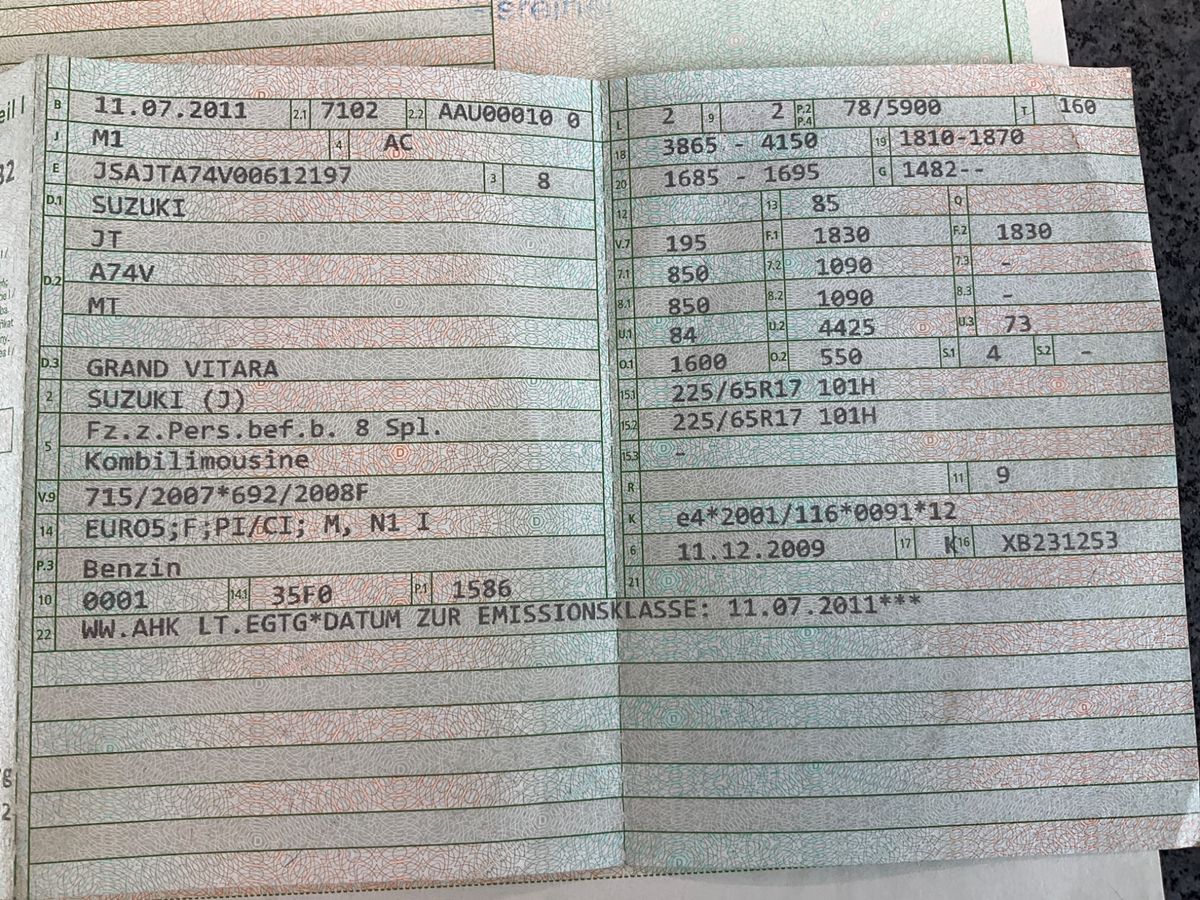 sreihei
eil I
B 11.07.2011 2.1 7102 2.2 AAU00010 0
J M1 4 AC
E JSAJTA74V00612197 3 8
D.1 SUZUKI
JT
D.2 A74V
MT
D.3 GRAND VITARA
2 SUZUKI (J)
5 Fz.z.Pers.bef.b. 8 Spl.
Kombilimousine
V.9 715/2007*692/2008F
14 EURO5;F;PI/CI; M, N1 I
P.3 Benzin
10 0001 14.1 35F0 P.1 1586
L 2 9 2 P.2 P.4 78/5900 T 160
18 3865 - 4150 19 1810-1870
20 1685 - 1695 G 1482--
12 13 85 Q
V.7 195 F.1 1830 F.2 1830
7.1 850 7.2 1090 7.3 -
8.1 850 8.2 1090 8.3 -
U.1 84 U.2 4425 U.3 73
O.1 1600 O.2 550 S.1 4 S.2 -
15.1 225/65R17 101H
15.2 225/65R17 101H
15.3 -
R 11 9
K e4*2001/116*0091*12
6 11.12.2009 17 K 16 XB231253
21
22 WW.AHK LT.EGTG*DATUM ZUR EMISSIONSKLASSE: 11.07.2011***